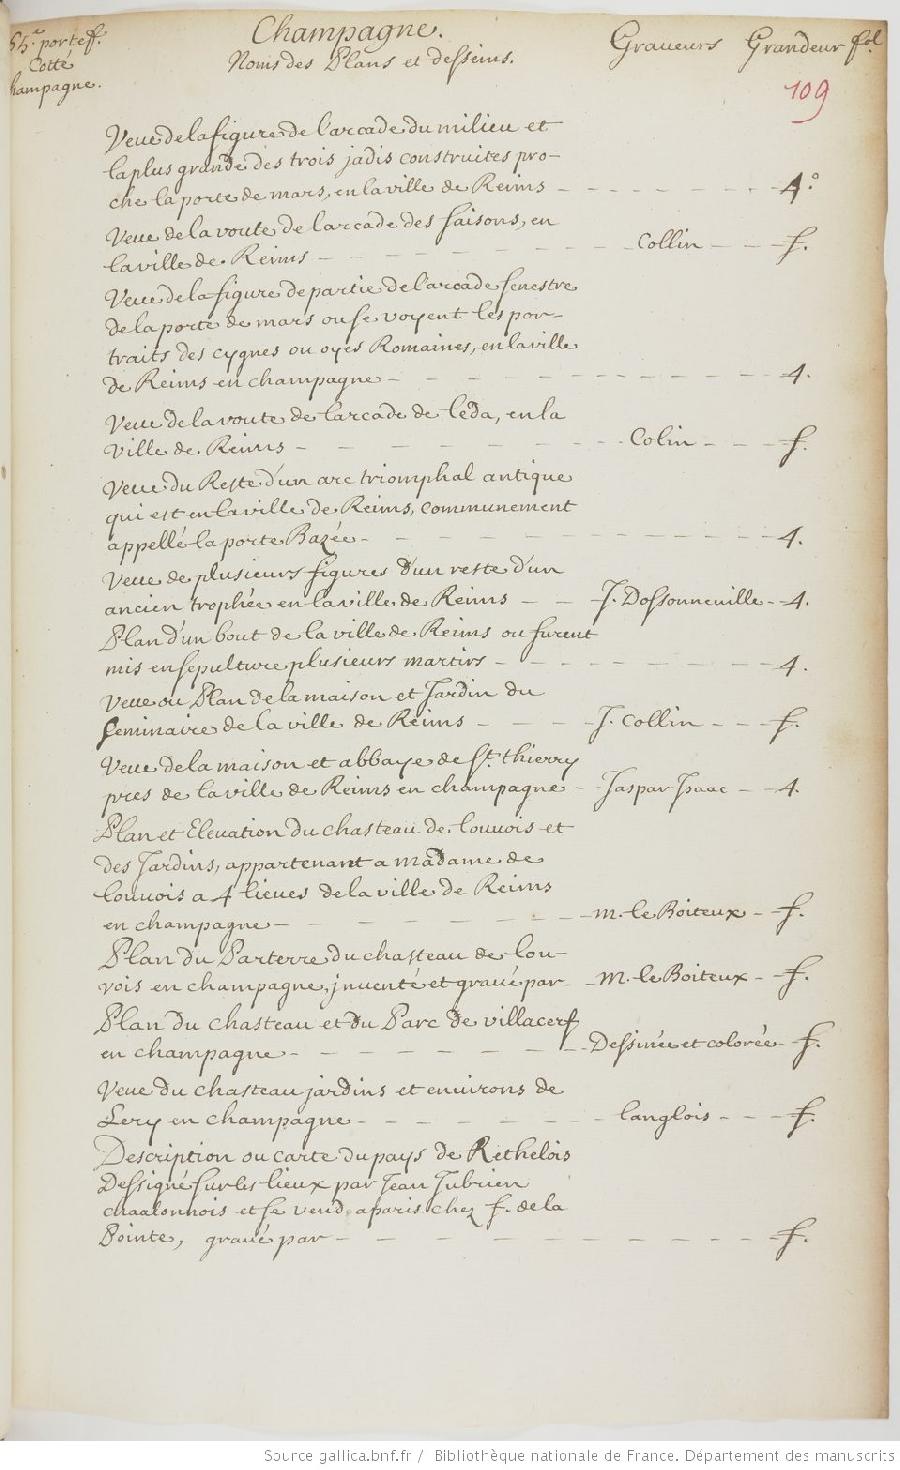 55.e portef. Champagne. Graveurs Grandeur fol
Cotté Noms des Plans et desseins.
Champagne. 109
Veue de la figure de l'arcade du milieu et
la plus grande des trois jadis construites pro-
che la porte de mars, en la ville de Reims - - - - - - 4.°
Veue de la voute de l'arcade des saisons, en
la ville de Reims - - - - - - Collin - - - f.
Veue de la figure de partie de l'arcade senestre
de la porte de mars ou se voyent les por-
traits des cygnes ou oyes Romaines, en la ville
de Reims en champagne - - - - - - 4.
Veue de la voute de l'arcade de léda, en la
ville de Reims - - - - - - Colin - - - f.
Veue du Reste d'un arc triomphal antique
qui est en la ville de Reims, communement
appellé la porte Bazée - - - - - - 4.
Veue de plusieurs figures d'un reste d'un
ancien trophée en la ville de Reims - - J. Dossonneuille - - 4.
Plan d'un bout de la ville de Reims ou furent
mis en sepulture plusieurs martirs - - - - - - 4.
Veue ou Plan de la maison et Jardin du
Seminaire de la ville de Reims - - - - J. Collin - - - f.
Veue de la maison et abbaye de St. thierry
pres de la ville de Reims en champagne - Jaspar Isaac - - 4.
Plan et Elevation du chasteau de louuois et
des Jardins, appartenant a madame de
louuois a 4 lieues de la ville de Reims
en champagne - - - - - - m. le Boiteux - f.
Plan du Parterre du chasteau de lou-
vois en champagne, jnuenté et graué par - m. le Boiteux - f.
Plan du chasteau et du Parc de villacerf
en champagne - - - - - - Dessinée et colorée - f.
Veue du chasteau jardins et environs de
Lery en champagne - - - - - - langlois - - - f.
Description ou carte du pays de Rethelois
Dessigné sur les lieux par Jean Jubrien
chaalonnois et se vend a paris chez f. de la
Pointe, graué par - - - - - - f.
Source gallica.bnf.fr / Bibliothèque nationale de France. Département des manuscrits